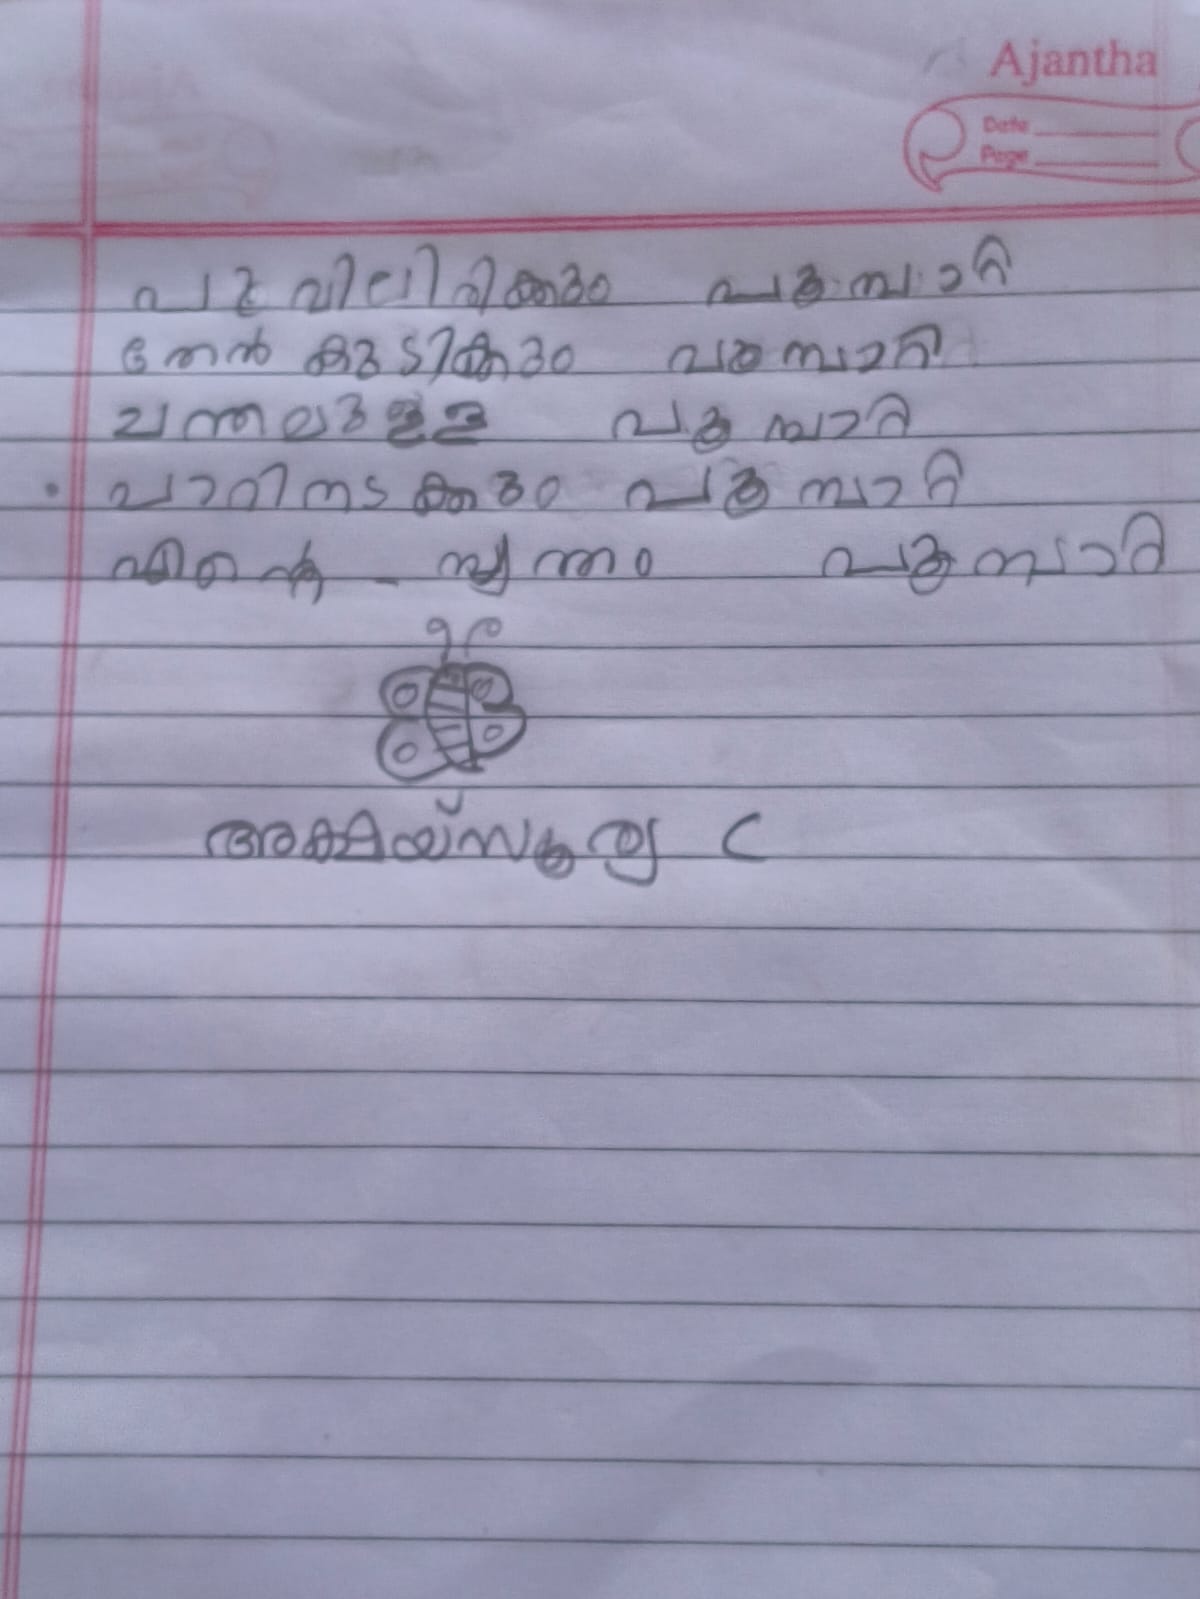 Ajantha
Date
Page
പുവിലിരിക്കും പൂമ്പാറ്റ
തേൻ കുടിക്കും പൂമ്പാറ്റ
ചന്തമുള്ള പൂമ്പാറ്റ
പാറിനടക്കും പൂമ്പാറ്റ
എന്റെ - സ്വന്തം പൂമ്പാറ്റ
അക്ഷയ്സൂര്യ C